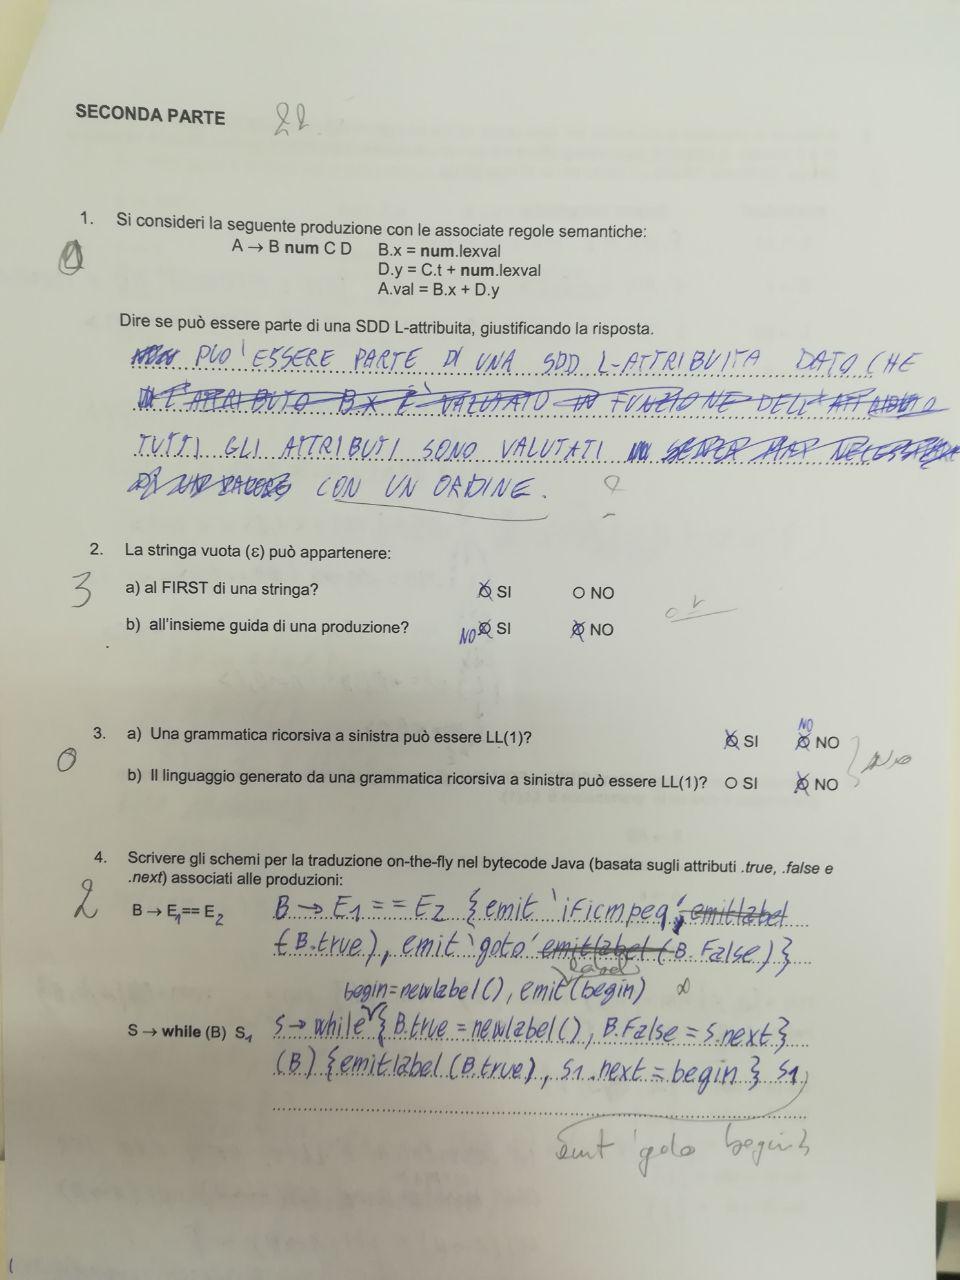 SECONDA PARTE 22
1. Si consideri la seguente produzione con le associate regole semantiche:
0
A → B num C D B.x = num.lexval
D.y = C.t + num.lexval
A.val = B.x + D.y
Dire se può essere parte di una SDD L-attribuita, giustificando la risposta.
NON PUO' ESSERE PARTE DI UNA SDD L-ATTRIBUITA DATO CHE
L'ATTRIBUTO B.X È VALUTATO IN FUNZIONE DELL'ATTRIBUTO
TUTTI GLI ATTRIBUTI SONO VALUTATI
CON UN ORDINE. ?
2. La stringa vuota (ε) può appartenere:
3 a) al FIRST di una stringa? SI O NO
b) all'insieme guida di una produzione? NO SI NO
NO
3. a) Una grammatica ricorsiva a sinistra può essere LL(1)? SI NO
0 b) Il linguaggio generato da una grammatica ricorsiva a sinistra può essere LL(1)? O SI NO
no
4. Scrivere gli schemi per la traduzione on-the-fly nel bytecode Java (basata sugli attributi .true, .false e
.next) associati alle produzioni:
2
B → E1== E2 B → E1 == E2 {emit 'ificmpeq' emitlabel
(B.true), emit 'goto' emitlabel (B.False)}
label
begin=newlabel(), emit (begin)
S → while (B) S1 S → while {B.true = newlabel(), B.False = S.next}
(B) {emitlabel (B.true), S1.next = begin } S1
emit 'goto begin}